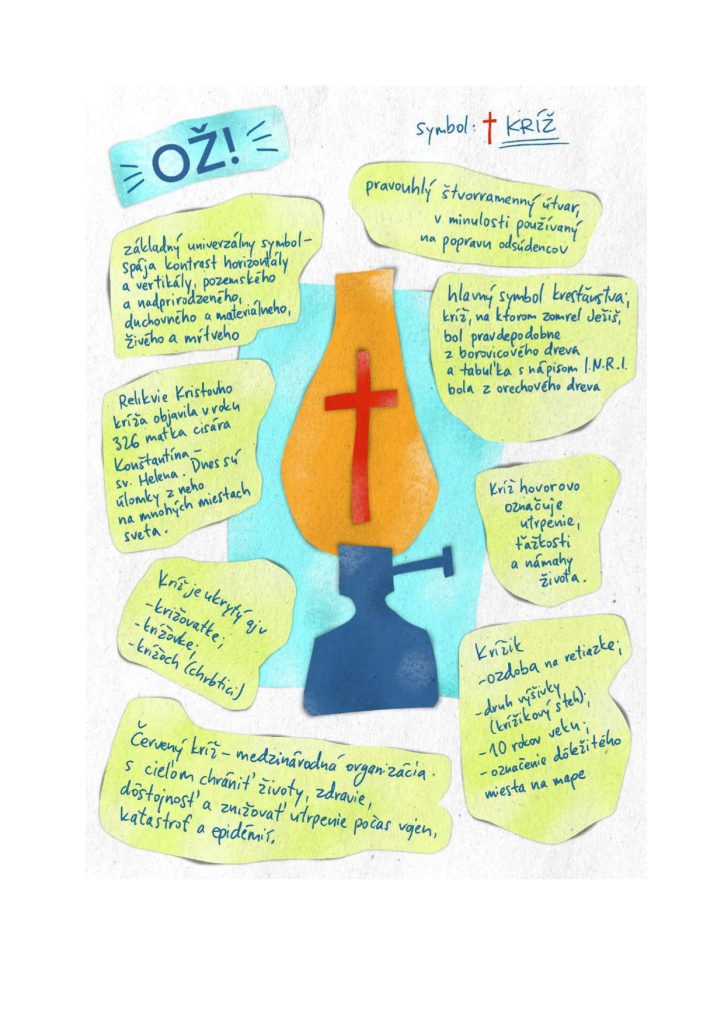 OŽ!
symbol: † KRÍŽ
pravouhlý štvorramenný útvar,
v minulosti používaný
na popravu odsúdencov
základný univerzálny symbol –
spája kontrast horizontály
a vertikály, pozemského
a nadprirodzeného,
duchovného a materiálneho,
živého a mŕtveho
hlavný symbol kresťanstva;
kríž, na ktorom zomrel Ježiš,
bol pravdepodobne
z borovicového dreva
a tabuľka s nápisom I.N.R.I.
bola z orechového dreva
Relikvie Kristovho
kríža objavila v roku
326 matka cisára
Konštantína –
sv. Helena. Dnes sú
úlomky z neho
na mnohých miestach
sveta.
Kríž hovorovo
označuje
utrpenie,
ťažkosti
a námahy
života.
Kríž je ukrytý aj v
- križovatke;
- krížovke;
- krížoch (chrbtici)
Krížik
- ozdoba na retiazke;
- druh výšivky
(krížikový steh);
- 10 rokov veku;
- označenie dôležitého
miesta na mape
Červený kríž – medzinárodná organizácia
s cieľom chrániť životy, zdravie,
dôstojnosť a znižovať utrpenie počas vojen,
katastrof a epidémií.